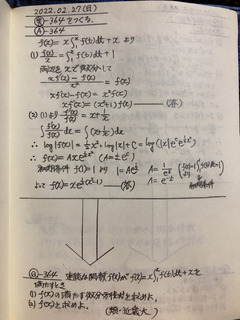 2022.02.27(日)
㊙-364をつくる。
Ⓐ-364
f(x) = x∫₁ˣ f(t)dt + x より
(1) f(x)/x = ∫₁ˣ f(t)dt + 1
両辺をxで微分して
(xf'(x) - f(x))/x² = f(x)
xf'(x) - f(x) = x²f(x)
xf'(x) = (x²+1)f(x) ―(答)
(2) (1)より f'(x)/f(x) = x + 1/x
∫ f'(x)/f(x) dx = ∫(x + 1/x)dx
∴ log|f(x)| = ½x² + log|x| + C = log(|x|e^c e^{½x²})
∴ f(x) = Axe^{½x²} (A = ±e^c)
初期条件 f(1) = 1 より 1 = Ae^{½} A = 1/e^{½}
A = e^{-½}
よって f(x) = xe^{½(x²-1)} ―(答)
Ⓠ-364 連続な関数f(x)が f(x) = x∫₁ˣ f(t)dt + x を
満たすとき
(1) f(x)の満たす微分方程式を求めよ。
(2) f(x)を求めよ。
(類・近畿大)